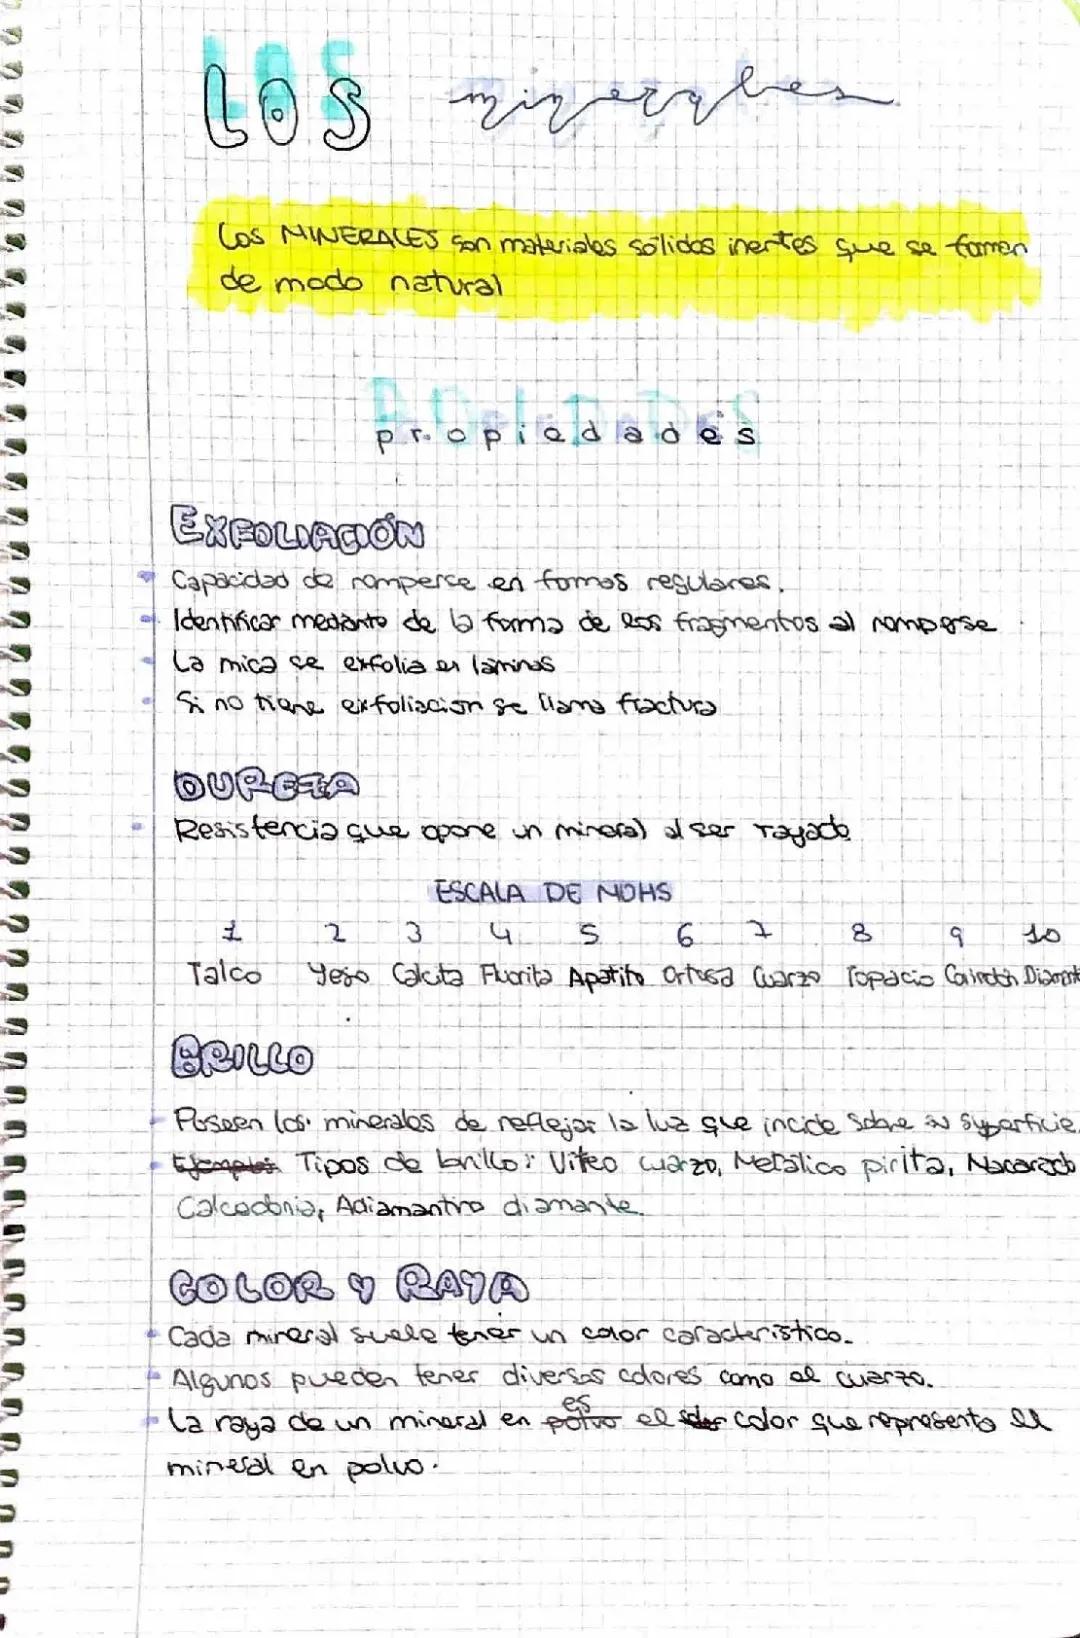 LOS minerales
Los MINERALES son materiales sólidos inertes que se forman
de modo natural
propiedades
EXFOLIACIÓN
Capacidad de romperce en formas regulares.
Identificar mediante de la forma de los fragmentos al romperse
La mica se exfolia en laminas
Si no tiene exfoliacion se llama fractura
DUREZA
Resistencia que opone un mineral al ser rayado
ESCALA DE MOHS
1 2 3 4 5 6 7 8 9 10
Talco Yeso Calcita Fluorita Apatito Ortosa Cuarzo Topacio Corindón Diamant
BRILLO
Poseen los minerales de reflejar la luz que incide sobre su superficie.
Ejemplos Tipos de brillo: Vitreo cuarzo, Metálico pirita, Nacarado
Calcedonia, Adiamantino diamante.
COLOR Y RAYA
Cada mineral suele tener un color caracteristico.
Algunos pueden tener diversos colores como el cuarzo.
La raya de un mineral en polvo es el color que representa el
mineral en polvo.